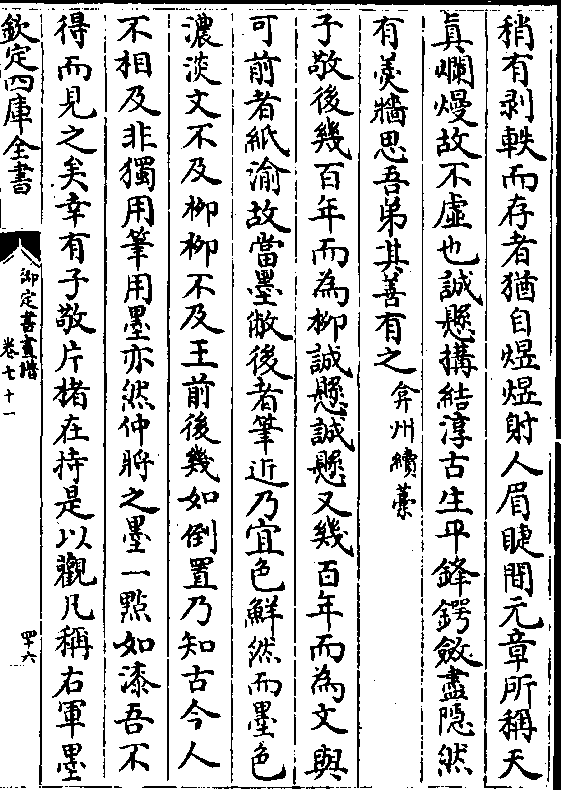 稍有剥軼而存者猶自煜煜射人眉睫間元章所稱天
真爛熳故不虛也誠懸搆結淳古生平鋒鍔斂盡隠然
有羮牆思吾弟其善有之弇州續藁
子敬後幾百年而為柳誠懸誠懸又幾百年而為文與
可前者紙渝故當墨敝後者筆近乃宜色鮮然而墨色
濃淡文不及柳柳不及王前後幾如倒置乃知古今人
不相及非獨用筆用墨亦然仲將之墨一㸃如漆吾不
得而見之矣幸有子敬片楮在持是以觀凡稱右軍墨
欽定四庫全書
御定書畫譜
卷七十一
四十六